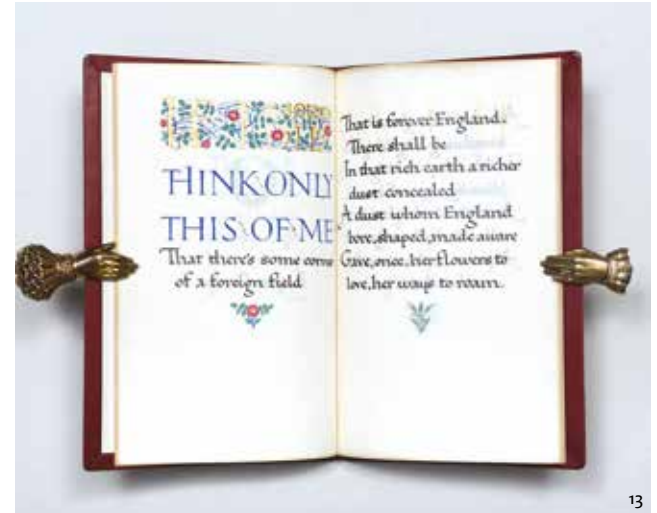 THINK ONLY
THIS·OF·ME
That there's some corne
of a foreign field
That is forever England.
There shall be
In that rich earth a richer
dust concealed
A dust whom England
bore, shaped, made aware
Gave, once, her flowers to
love, her ways to roam.
13